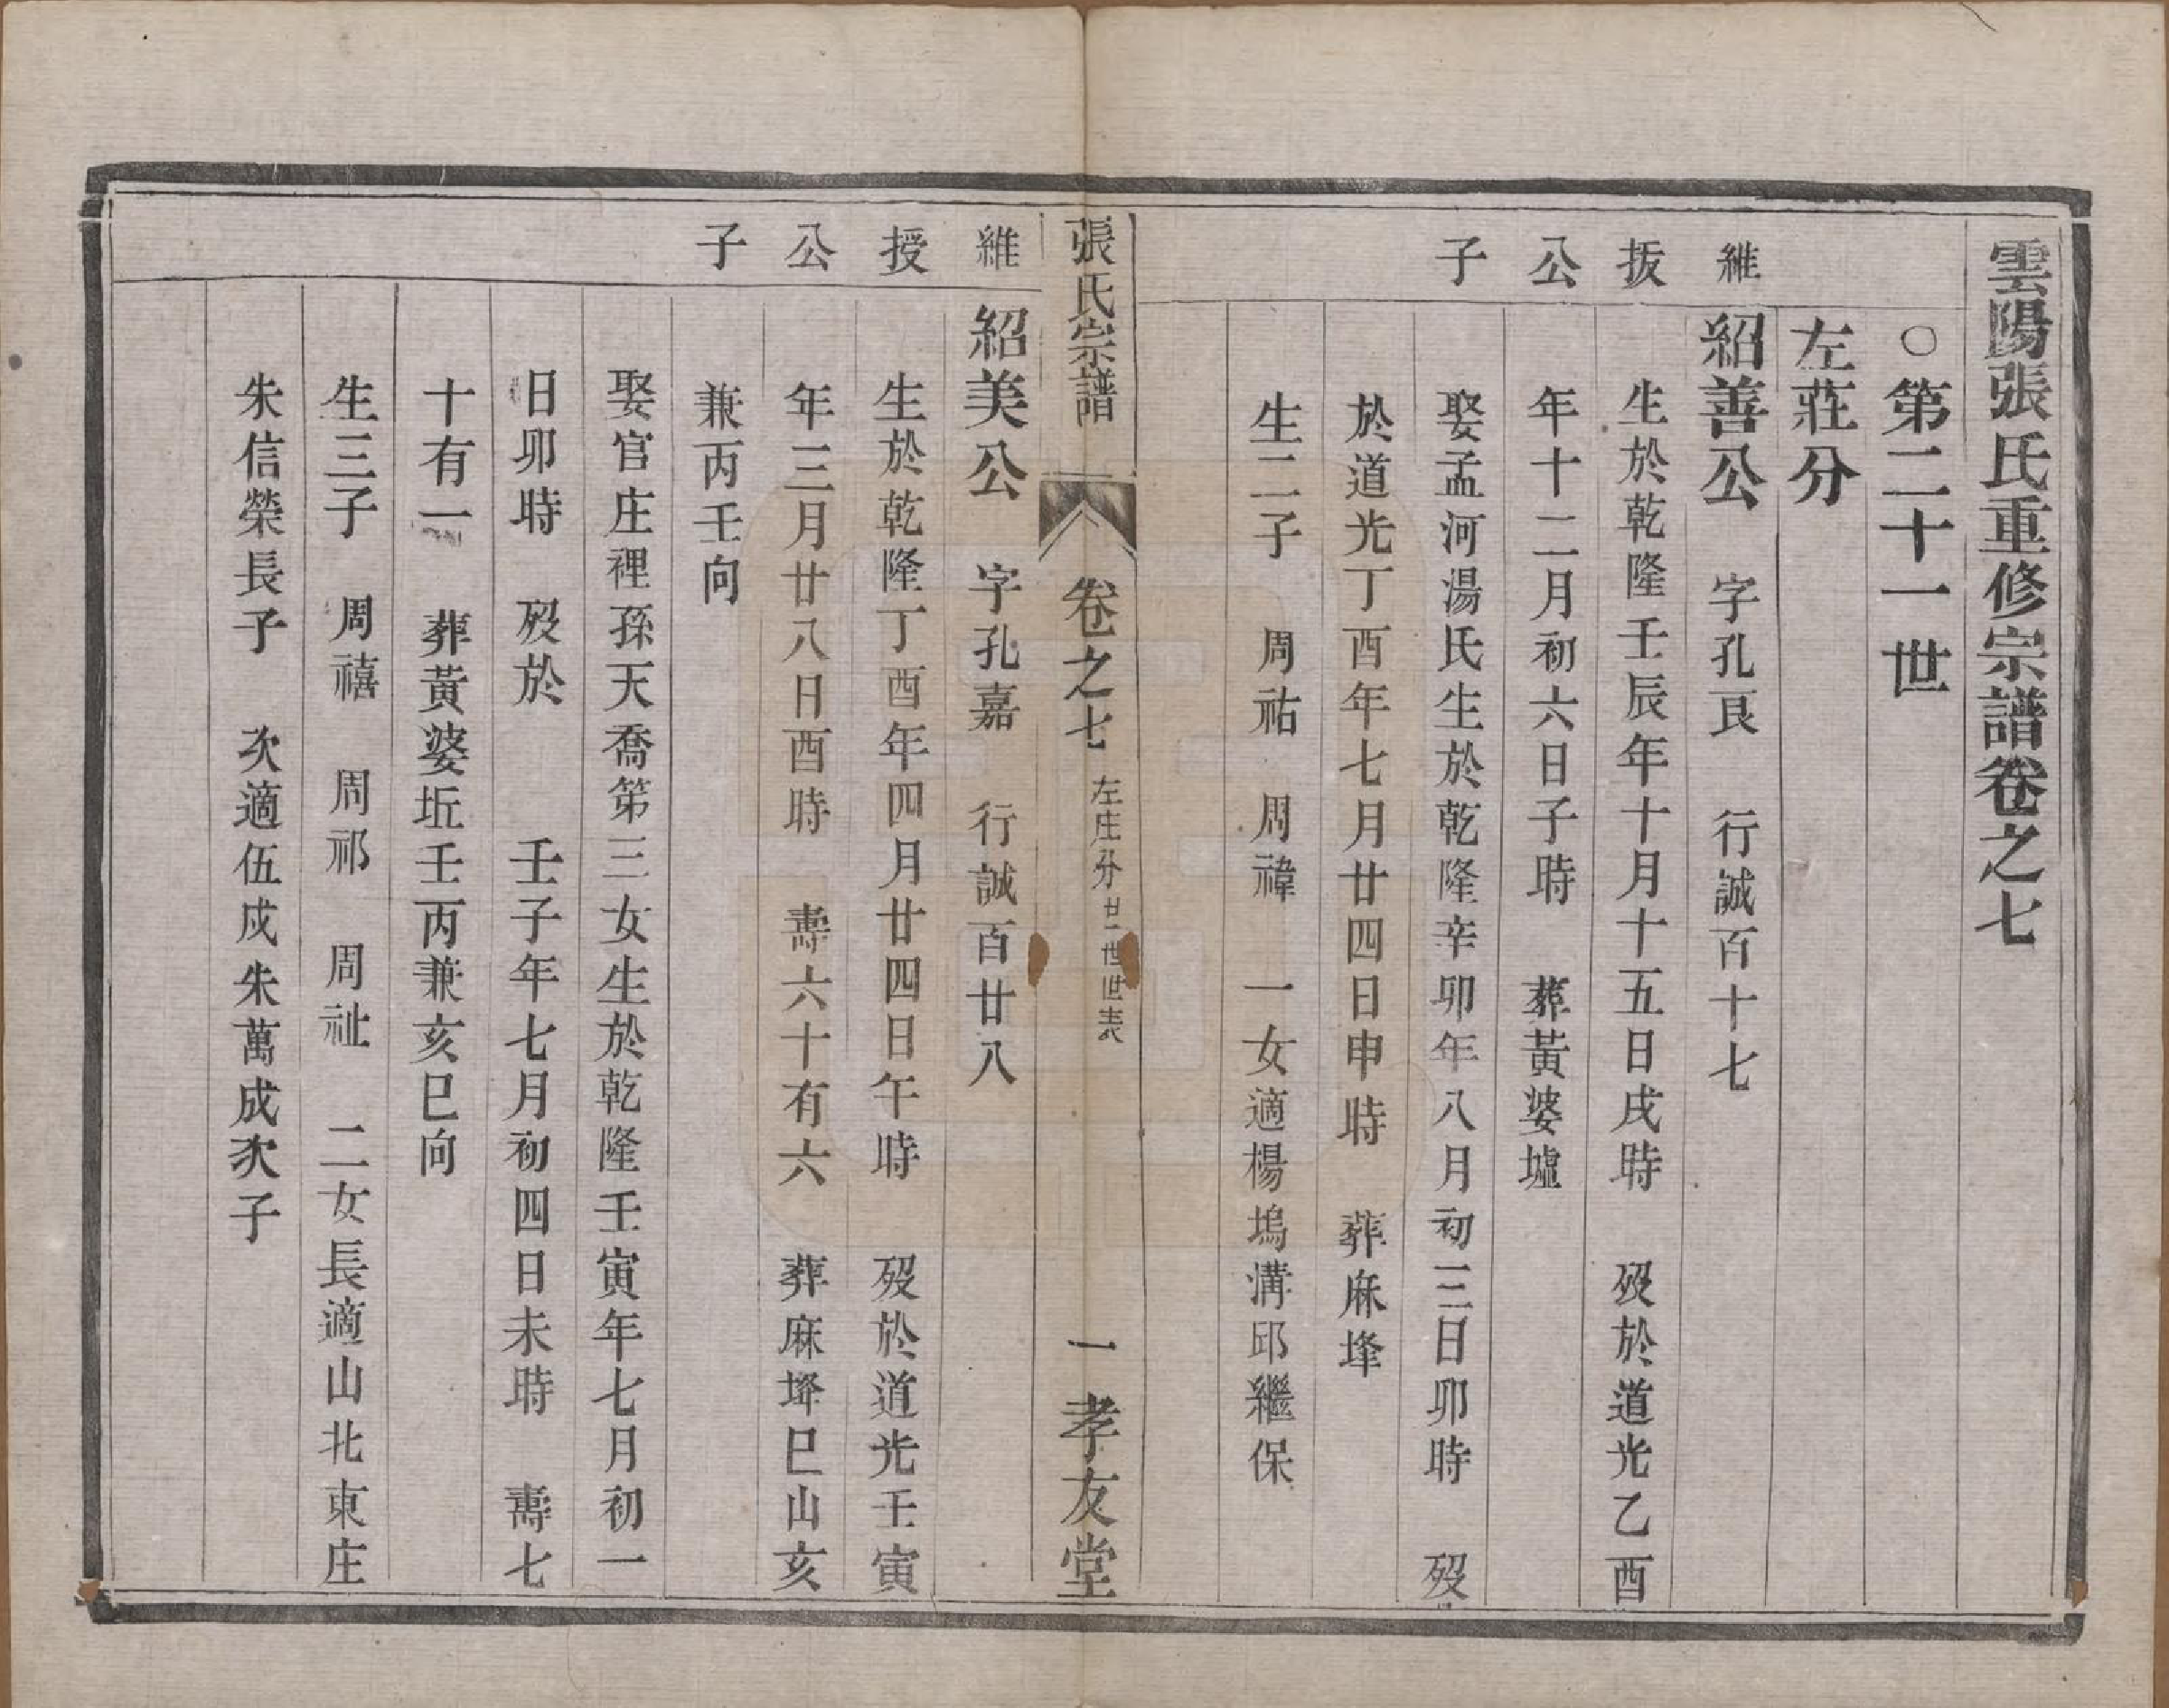 雲陽張氏重修宗譜卷之七
○第二十一世
左莊分
維 紹善公 字孔艮 行誠百十七
拔 生於乾隆壬辰年十月十五日戌時 歿於道光乙酉
公 年十二月初六日子時 葬黃婆墟
子 娶孟河湯氏生於乾隆辛卯年八月初三日卯時 歿
於道光丁酉年七月廿四日申時 葬麻埄
生二子 周祐 周禕 一女適楊塢溝邱繼保
張氏宗譜 卷之七 左庄分廿一世世表 一 孝友堂
維 紹美公 字孔嘉 行誠百廿八
授 生於乾隆丁酉年四月廿四日午時 歿於道光壬寅
公 年三月廿八日酉時 壽六十有六 葬麻埄巳山亥
子 兼丙壬向
娶官庄裡孫天喬第三女生於乾隆壬寅年七月初一
日卯時 歿於 壬子年七月初四日未時 壽七
十有一 葬黃婆坵壬丙兼亥巳向
生三子 周禧 周祁 周祉 二女長適山北東庄
朱信榮長子 次適伍戍朱萬成次子